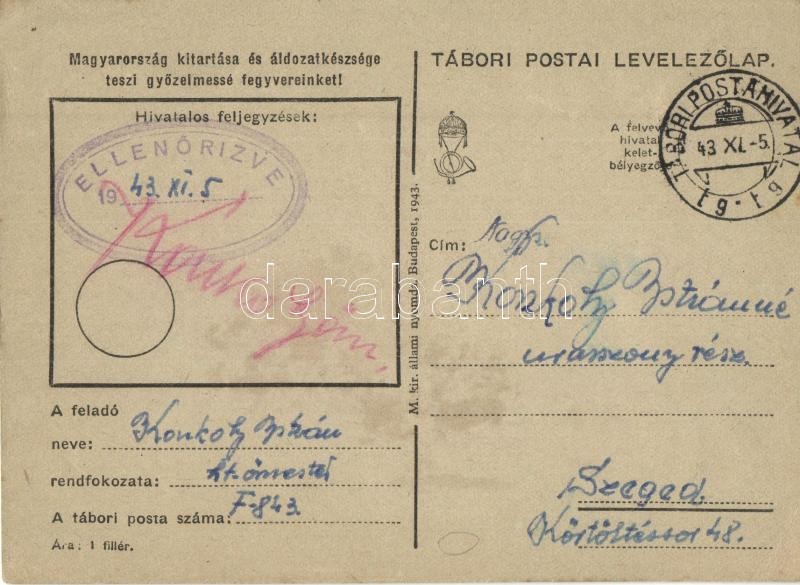 Magyarország kitartása és áldozatkészsége
teszi győzelmessé fegyvereinket!
Hivatalos feljegyzések:
ELLENŐRIZVE
19 43. XI. 5
A feladó
neve: Konkoly István
rendfokozata:
A tábori posta száma: F-843
Ára: 1 fillér.
M. kir. állami nyomda, Budapest, 1943.
TÁBORI POSTAI LEVELEZŐLAP.
A felvevő
hivatal
kelet-
bélyegző
TÁBORI POSTAHIVATAL
43 XI.-5.
Cím: Nagys.
Konkoly Istvánné
urasszony rész.
Szeged.
48.
darabanth